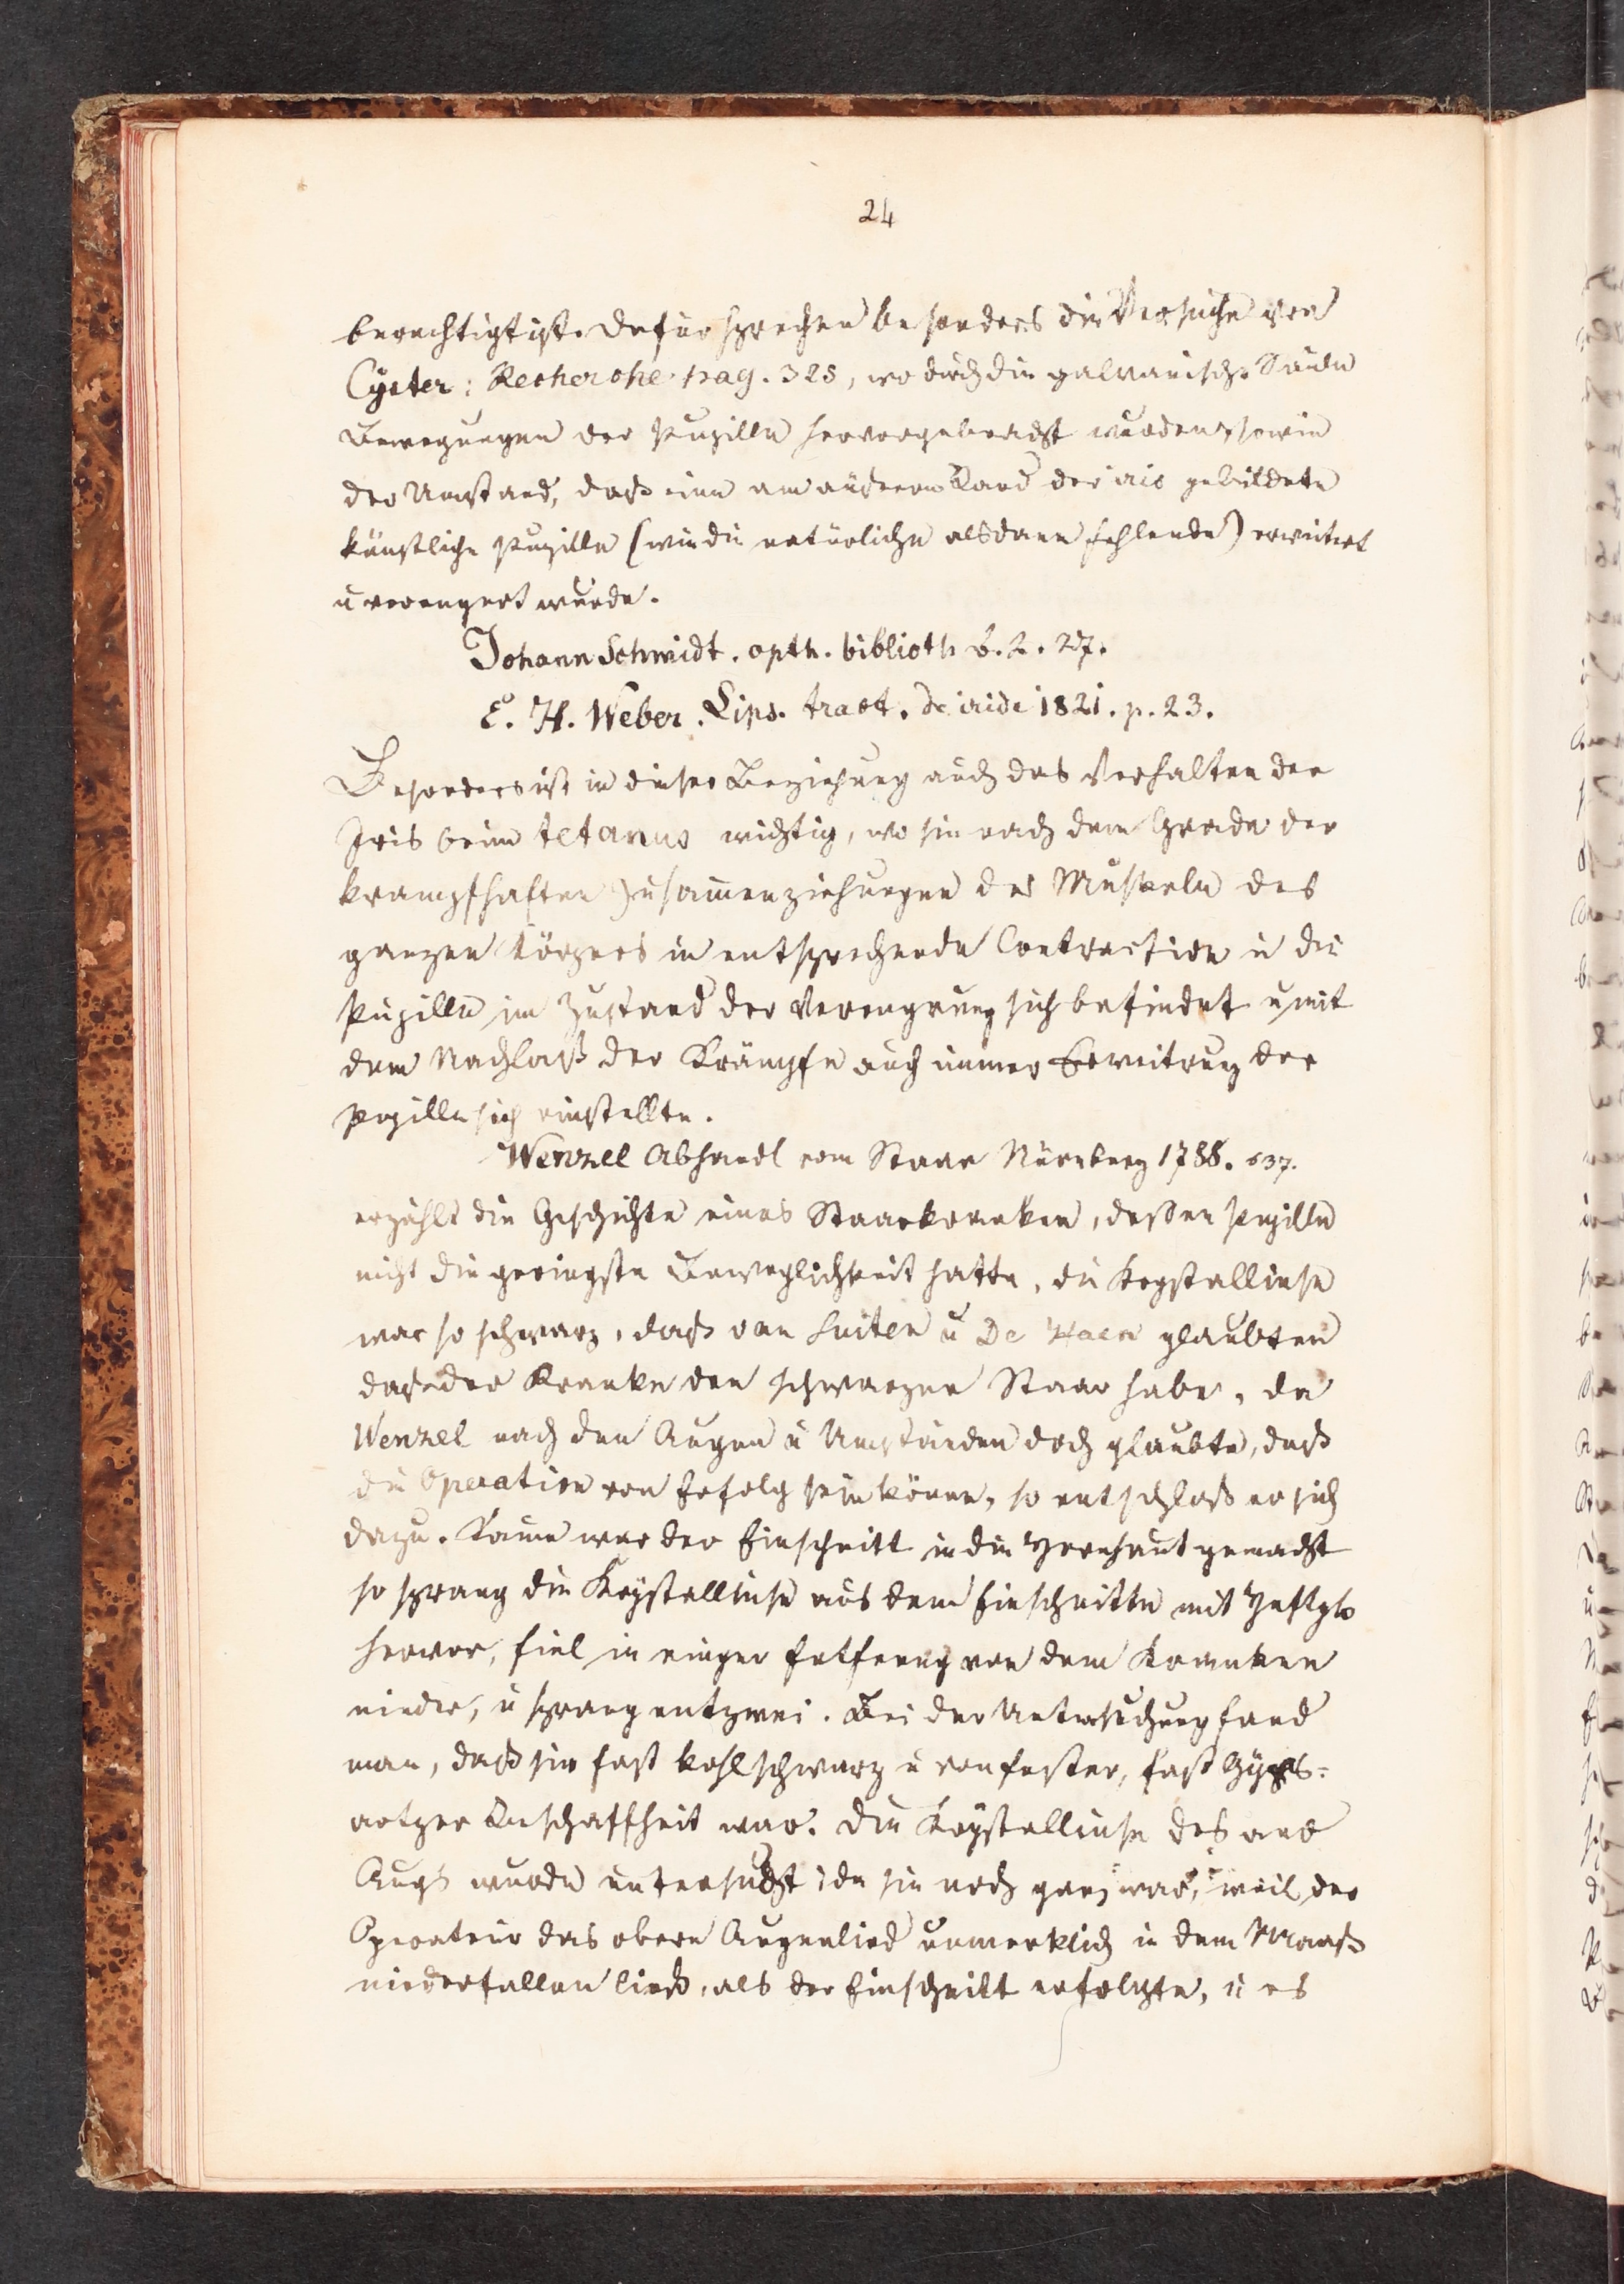 24
berechtigt ist. Dafür sprechen besonders die Versuche von
Cyster: Recherche pag. 325, wo durch die galvanische Säule
Bewegungen der Pupille hervorgebracht wurden, sowie
der Umstand, daß eine am äußeren Rand der iris gebildete
künstliche Pupille (wie die natürliche alsdann fehlende) erweitert
u verengert wurde.
Johann Schmidt. opth. biblioth b. 2. 27.
E. H. Weber. Lips. tract. de iride 1821. p. 23.
Besonders ist in dieser Beziehung auch das Verhalten der
Iris beim tetanus wichtig, wo sie nach dem Grade der
krampfhaften Zusam̅enziehungen der Muskeln des
ganzen Körpers in entsprechende Contraction u die
Pupille im Zustand der Verengrung sich befindet u mit
dem Nachlaß der Krämpfe auch immer Erweitrung der
Pupille sich einstellte.
Wenzel Abhandl vom Staar Nürnberg 1788. 637.
erzählt die Geschichte eines Staarkranken, dessen Pupille
nicht die geringste Beweglichkeit hatte, die Krystallinse
war so schwarz, daß van Suiten u De Haen glaubten
daß der Kranke den schwarzen Staar habe, da
Wenzel nach den Augen u Umständen doch glaubte, daß
die Operation von Erfolg sein könne, so entschloß er sich
dazu. Kaum war der Einschnitt in die Hornhaut gemacht
so sprang die Krystallinse aus dem Einschnitte mit
hervor, fiel in einger Entfernug von dem Kranken
nieder, u sprang entzwei. Bei der Untersuchung fand
man, daß sie fast kohlschwarz u von fester, fast Gyps-
artger Beschaffheit war. Die Krystallinse des and
Augs wurde untersucht, da sie noch ganz war, weil der
Operateur das obere Augenlied unmerklich in dem Maaß
niederfallen ließ, als der Einschnitt erfolgte, u es